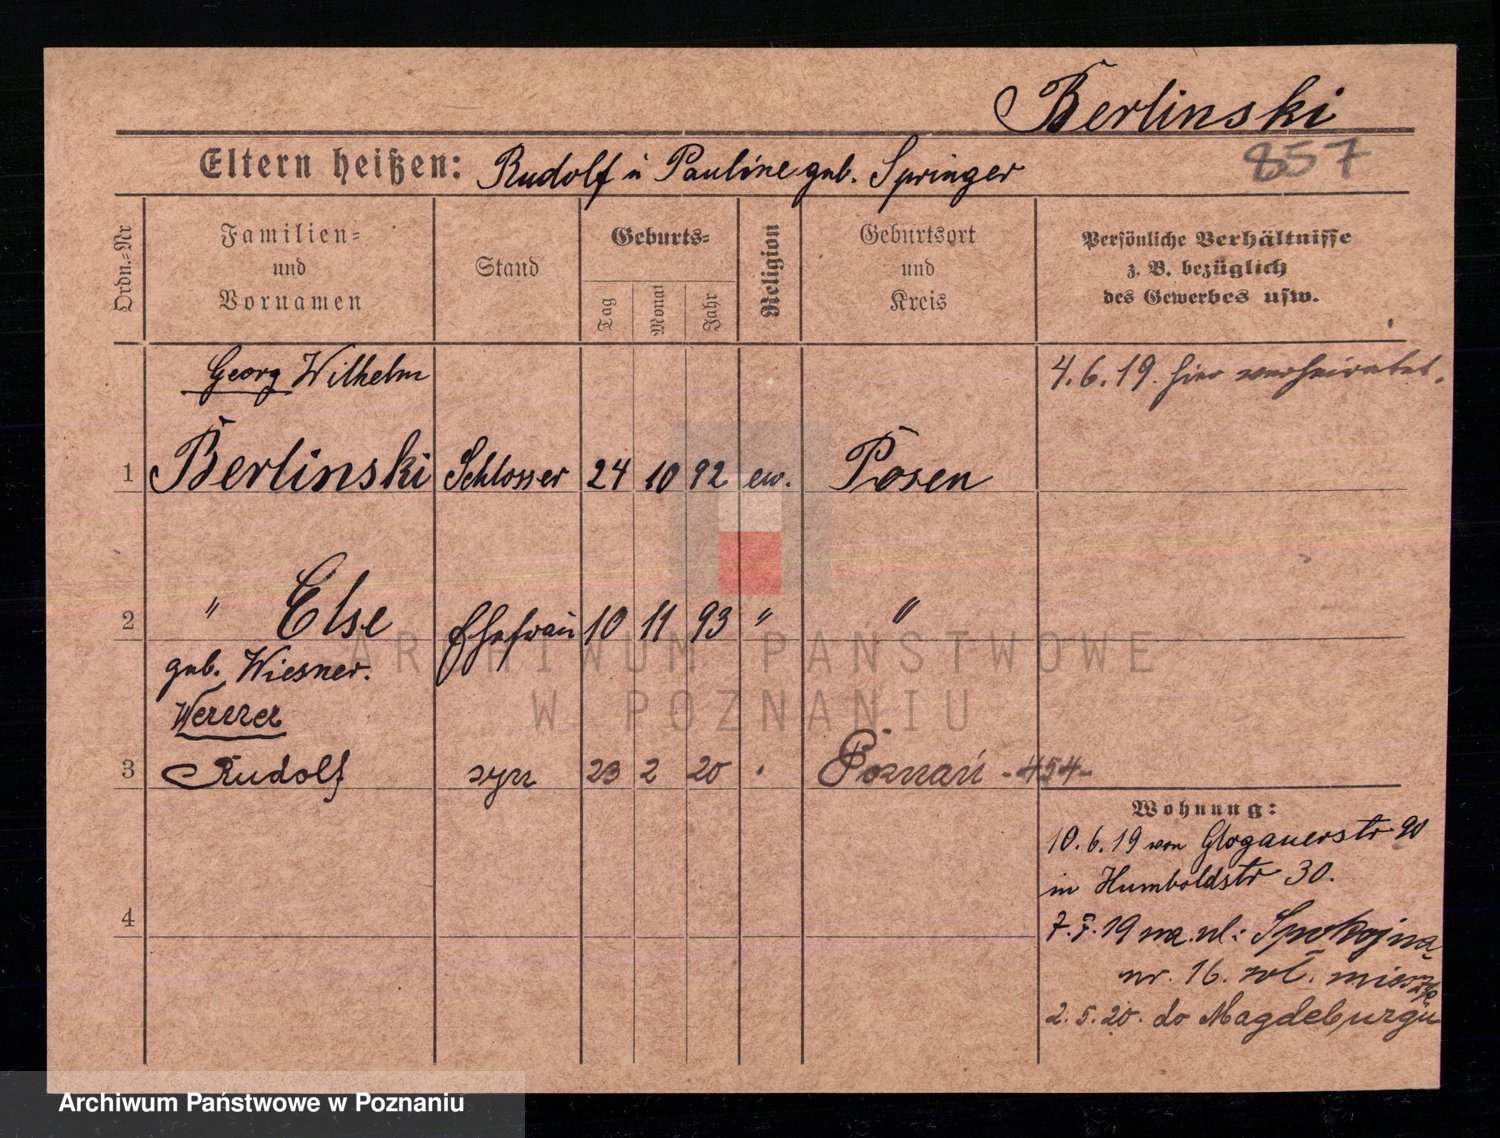 Berlinski
857
Eltern heißen: Rudolf u Pauline geb. Springer
Ordn.-Nr
Familien-
und
Vornamen
Stand
Geburts-
Tag
Monat
Jahr
Religion
Geburtsort
und
Kreis
Persönliche Verhältnisse
z. B. bezüglich
des Gewerbes usw.
Georg Wilhelm
4.6.19. hier verheiratet.
1 Berlinski Schlosser 24 10 92 ew. Posen
2 " Else Ehefrau 10 11 93 " "
geb. Wiesner.
Werner
3 Rudolf syn 23 2 20 Poznań -454-
Wohnung:
10.6.19 von Glogauerstr 90
in Humboldstr 30.
4
7.7.19 na ul: Spokojna
nr. 16. wł. mieszk
2.5.20. do Magdeburgu
ARCHIWUM PAŃSTWOWE
W POZNANIU
Archiwum Państwowe w Poznaniu